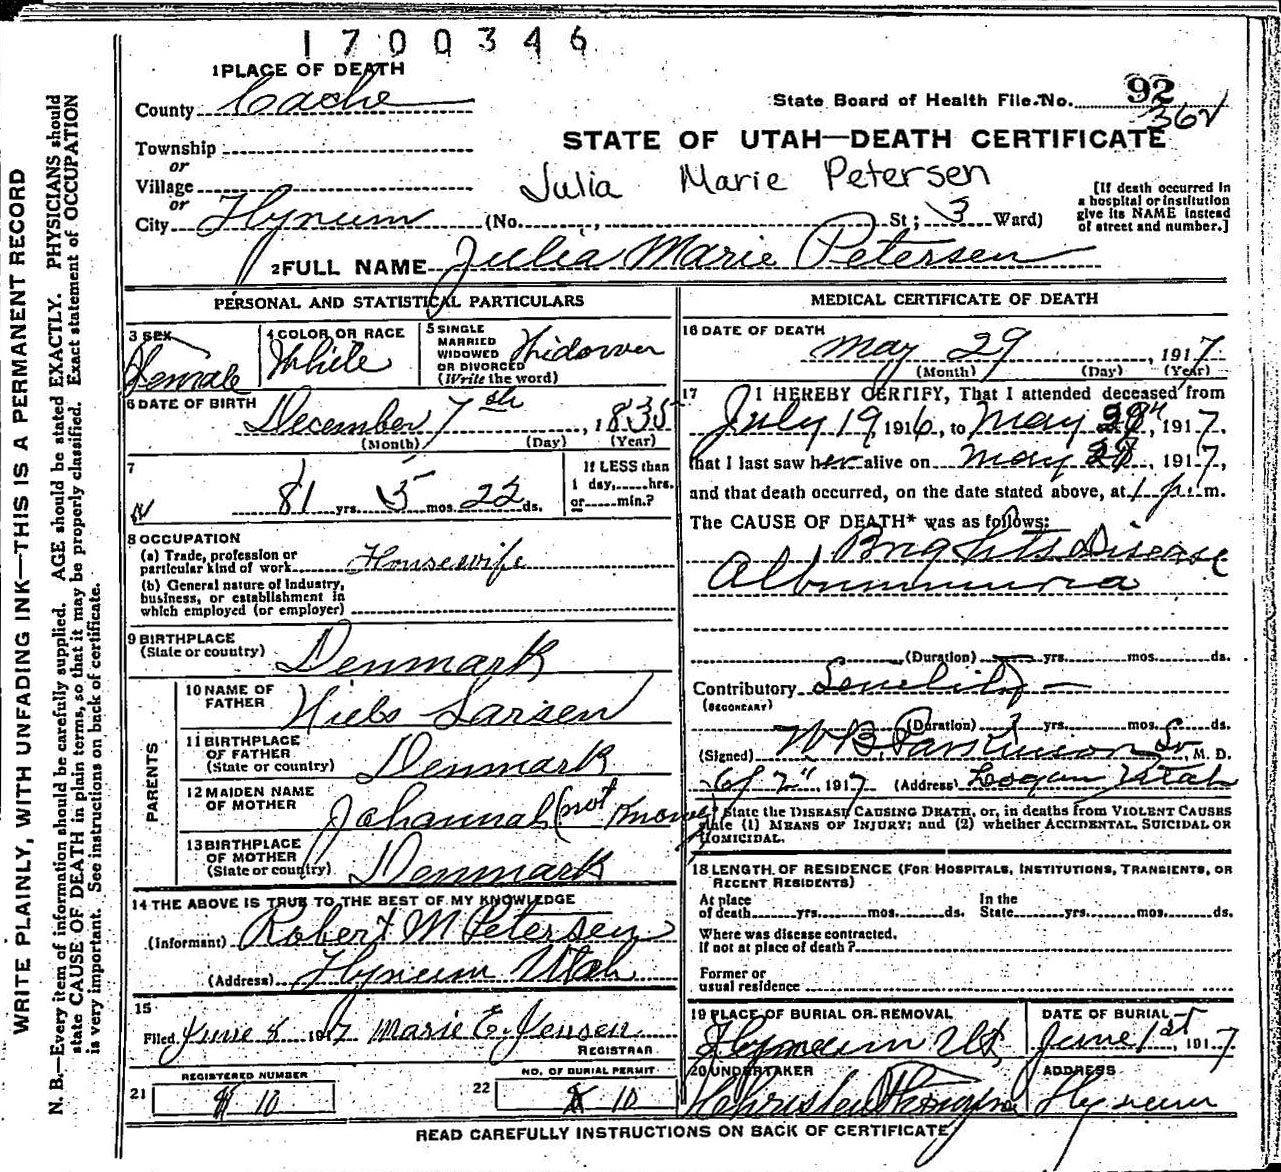 1700346
1 PLACE OF DEATH
County Cache
State Board of Health File No. 92
362
Township
STATE OF UTAH—DEATH CERTIFICATE
or
Village
Julia Marie Petersen
or
City Hyrum (No. St; 3 Ward)
[If death occurred in a hospital or institution give its NAME instead of street and number.]
2 FULL NAME Julia Marie Petersen
PERSONAL AND STATISTICAL PARTICULARS
3 SEX Female
4 COLOR OR RACE White
5 SINGLE MARRIED WIDOWED OR DIVORCED (Write the word) Widower
6 DATE OF BIRTH
December 7th, 1835
(Month) (Day) (Year)
7
81 yrs. 5 mos. 22 ds.
If LESS than 1 day,.....hrs. or.....min.?
8 OCCUPATION
(a) Trade, profession or particular kind of work Housewife
(b) General nature of industry, business, or establishment in which employed (or employer)
9 BIRTHPLACE
(State or country) Denmark
PARENTS
10 NAME OF FATHER Niels Larsen
11 BIRTHPLACE OF FATHER (State or country) Denmark
12 MAIDEN NAME OF MOTHER Johannah (not Known)
13 BIRTHPLACE OF MOTHER (State or country) Denmark
14 THE ABOVE IS TRUE TO THE BEST OF MY KNOWLEDGE
(Informant) Robert M Petersen
(Address) Hyrum Utah
15
Filed June 8 1917 Marie E. Jensen
REGISTRAR
21 REGISTERED NUMBER 10
22 NO. OF BURIAL PERMIT 10
MEDICAL CERTIFICATE OF DEATH
16 DATE OF DEATH
May 29, 1917
(Month) (Day) (Year)
17 I HEREBY CERTIFY, That I attended deceased from
July 19, 1916, to May , 1917,
that I last saw her alive on May , 1917,
and that death occurred, on the date stated above, at 1 p.m.
The CAUSE OF DEATH* was as follows:
Brights Disease
Albuminuria
(Duration) yrs. mos. ds.
Contributory Senility
(SECONDARY)
(Duration) yrs. mos. ds.
(Signed) W B Parkinson Sr, M. D.
6/2", 1917 (Address) Logan Utah
* State the DISEASE CAUSING DEATH, or, in deaths from VIOLENT CAUSES
state (1) MEANS OF INJURY; and (2) whether ACCIDENTAL, SUICIDAL OR
HOMICIDAL.
18 LENGTH OF RESIDENCE (FOR HOSPITALS, INSTITUTIONS, TRANSIENTS, OR
RECENT RESIDENTS)
At place of death yrs. mos. ds. In the State yrs. mos. ds.
Where was disease contracted,
If not at place of death?
Former or
usual residence
19 PLACE OF BURIAL OR REMOVAL Hyrum Ut
DATE OF BURIAL June 1st, 1917
20 UNDERTAKER
ADDRESS Hyrum
READ CAREFULLY INSTRUCTIONS ON BACK OF CERTIFICATE
WRITE PLAINLY, WITH UNFADING INK—THIS IS A PERMANENT RECORD
N. B.—Every item of information should be carefully supplied. AGE should be stated EXACTLY. PHYSICIANS should
state CAUSE OF DEATH in plain terms, so that it may be properly classified. Exact statement of OCCUPATION
is very important. See instructions on back of certificate.